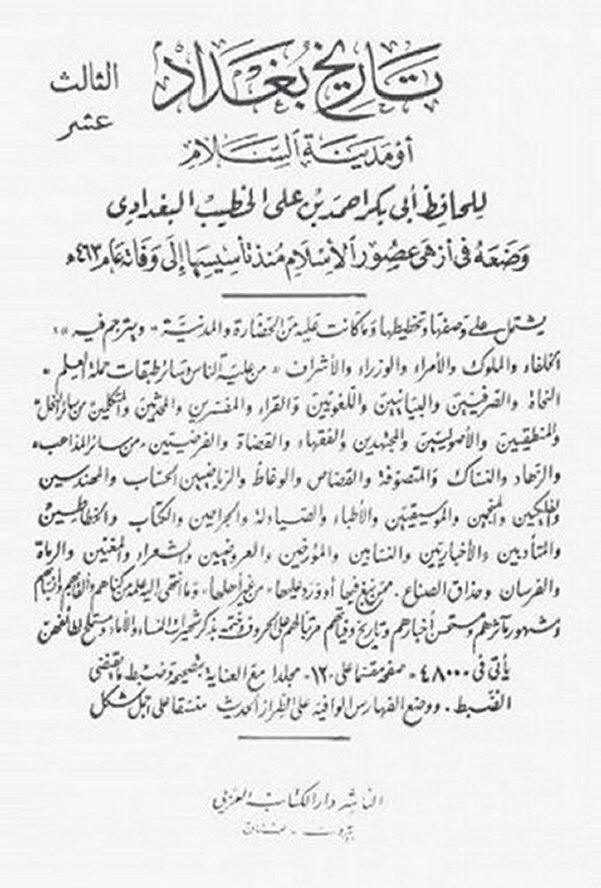 تاريخ بغداد
الثالث
عشر
أو مدينة السلام
للحافظ أبى بكر احمد بن على الخطيب البغدادى
وضعه فى أزهى عصور الأسلام منذ تأسيسها إلى وفاته عام ٤٦٣ ه
يشتمل على وصفها وتخطيطها وما كانت عليه من الحضارة والمدنية « ويترجم فيه »
الخلفاء والملوك والأمراء والوزراء والأشراف « من علية الناس وسائر طبقات حملة العلم »
النحاة والصرفيين والبيانيين واللغويين والقراء والمفسرين والمحدثين والمتكلمين من سائر النحل
والمنطقيين والأصوليين والمجتهدين والفقهاء والقضاة والفرضيين من سائر المذاهب
والزهاد والنساك والمتصوفة والقصاص والوعاظ والرياضيين الحساب والمهندسين
والفلكيين والمنجمين والموسيقيين والأطباء والصيادلة والجراحين والكتاب والخطاطين
والمتأدبين والأخباريين والنسابين والمؤرخين والعروضيين والشعراء والمغنين والرماة
والفرسان وحذاق الصناع . ممن نبغ فيها أو ورد عليها « من غير أهلها » وما انتهى اليه علمه من كناهم وألقابهم وأنسابهم
ومشهور مآثرهم ومستحسن أخبارهم وتاريخ وفياتهم مرتبا لهم على الحروف وختمه بذكر شهيرات النساء والأماء ومستملح لطائفهن
يأتى فى ٤٨٠٠٠ صفحة مقسما على ١٢ مجلدا مع العناية بتصحيحه وضبط ما يقتضى
الضبط . ووضع الفهارس الوافية على الطراز الحديث منسقا على أجمل شكل
الناشر دار الكتاب العربي
بيروت - لبنان